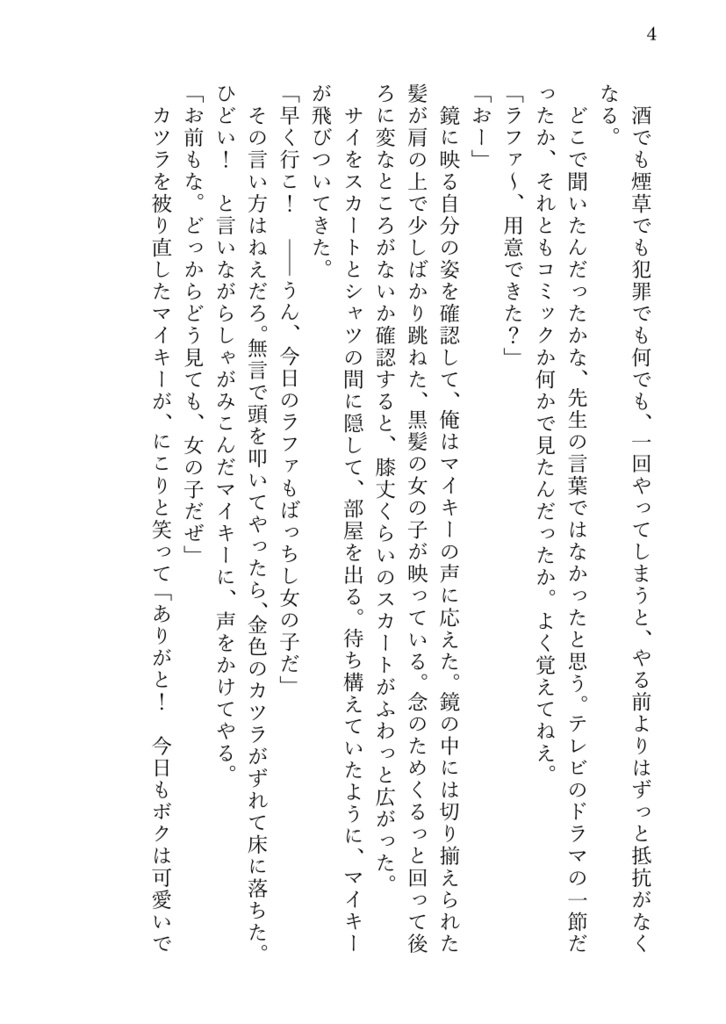 4
　酒でも煙草でも犯罪でも何でも、一回やってしまうと、やる前よりはずっと抵抗がなく
なる。
　どこで聞いたんだったかな、先生の言葉ではなかったと思う。テレビのドラマの一節だ
ったか、それともコミックか何かで見たんだったか。よく覚えてねえ。
「ラファ〜、用意できた？」
「おー」
　鏡に映る自分の姿を確認して、俺はマイキーの声に応えた。鏡の中には切り揃えられた
髪が肩の上で少しばかり跳ねた、黒髪の女の子が映っている。念のためくるっと回って後
ろに変なところがないか確認すると、膝丈くらいのスカートがふわっと広がった。
　サイをスカートとシャツの間に隠して、部屋を出る。待ち構えていたように、マイキー
が飛びついてきた。
「早く行こ！　――うん、今日のラファもばっちし女の子だ」
　その言い方はねえだろ。無言で頭を叩いてやったら、金色のカツラがずれて床に落ちた。
ひどい！　と言いながらしゃがみこんだマイキーに、声をかけてやる。
「お前もな。どっからどう見ても、女の子だぜ」
　カツラを被り直したマイキーが、にこりと笑って「ありがと！　今日もボクは可愛いで